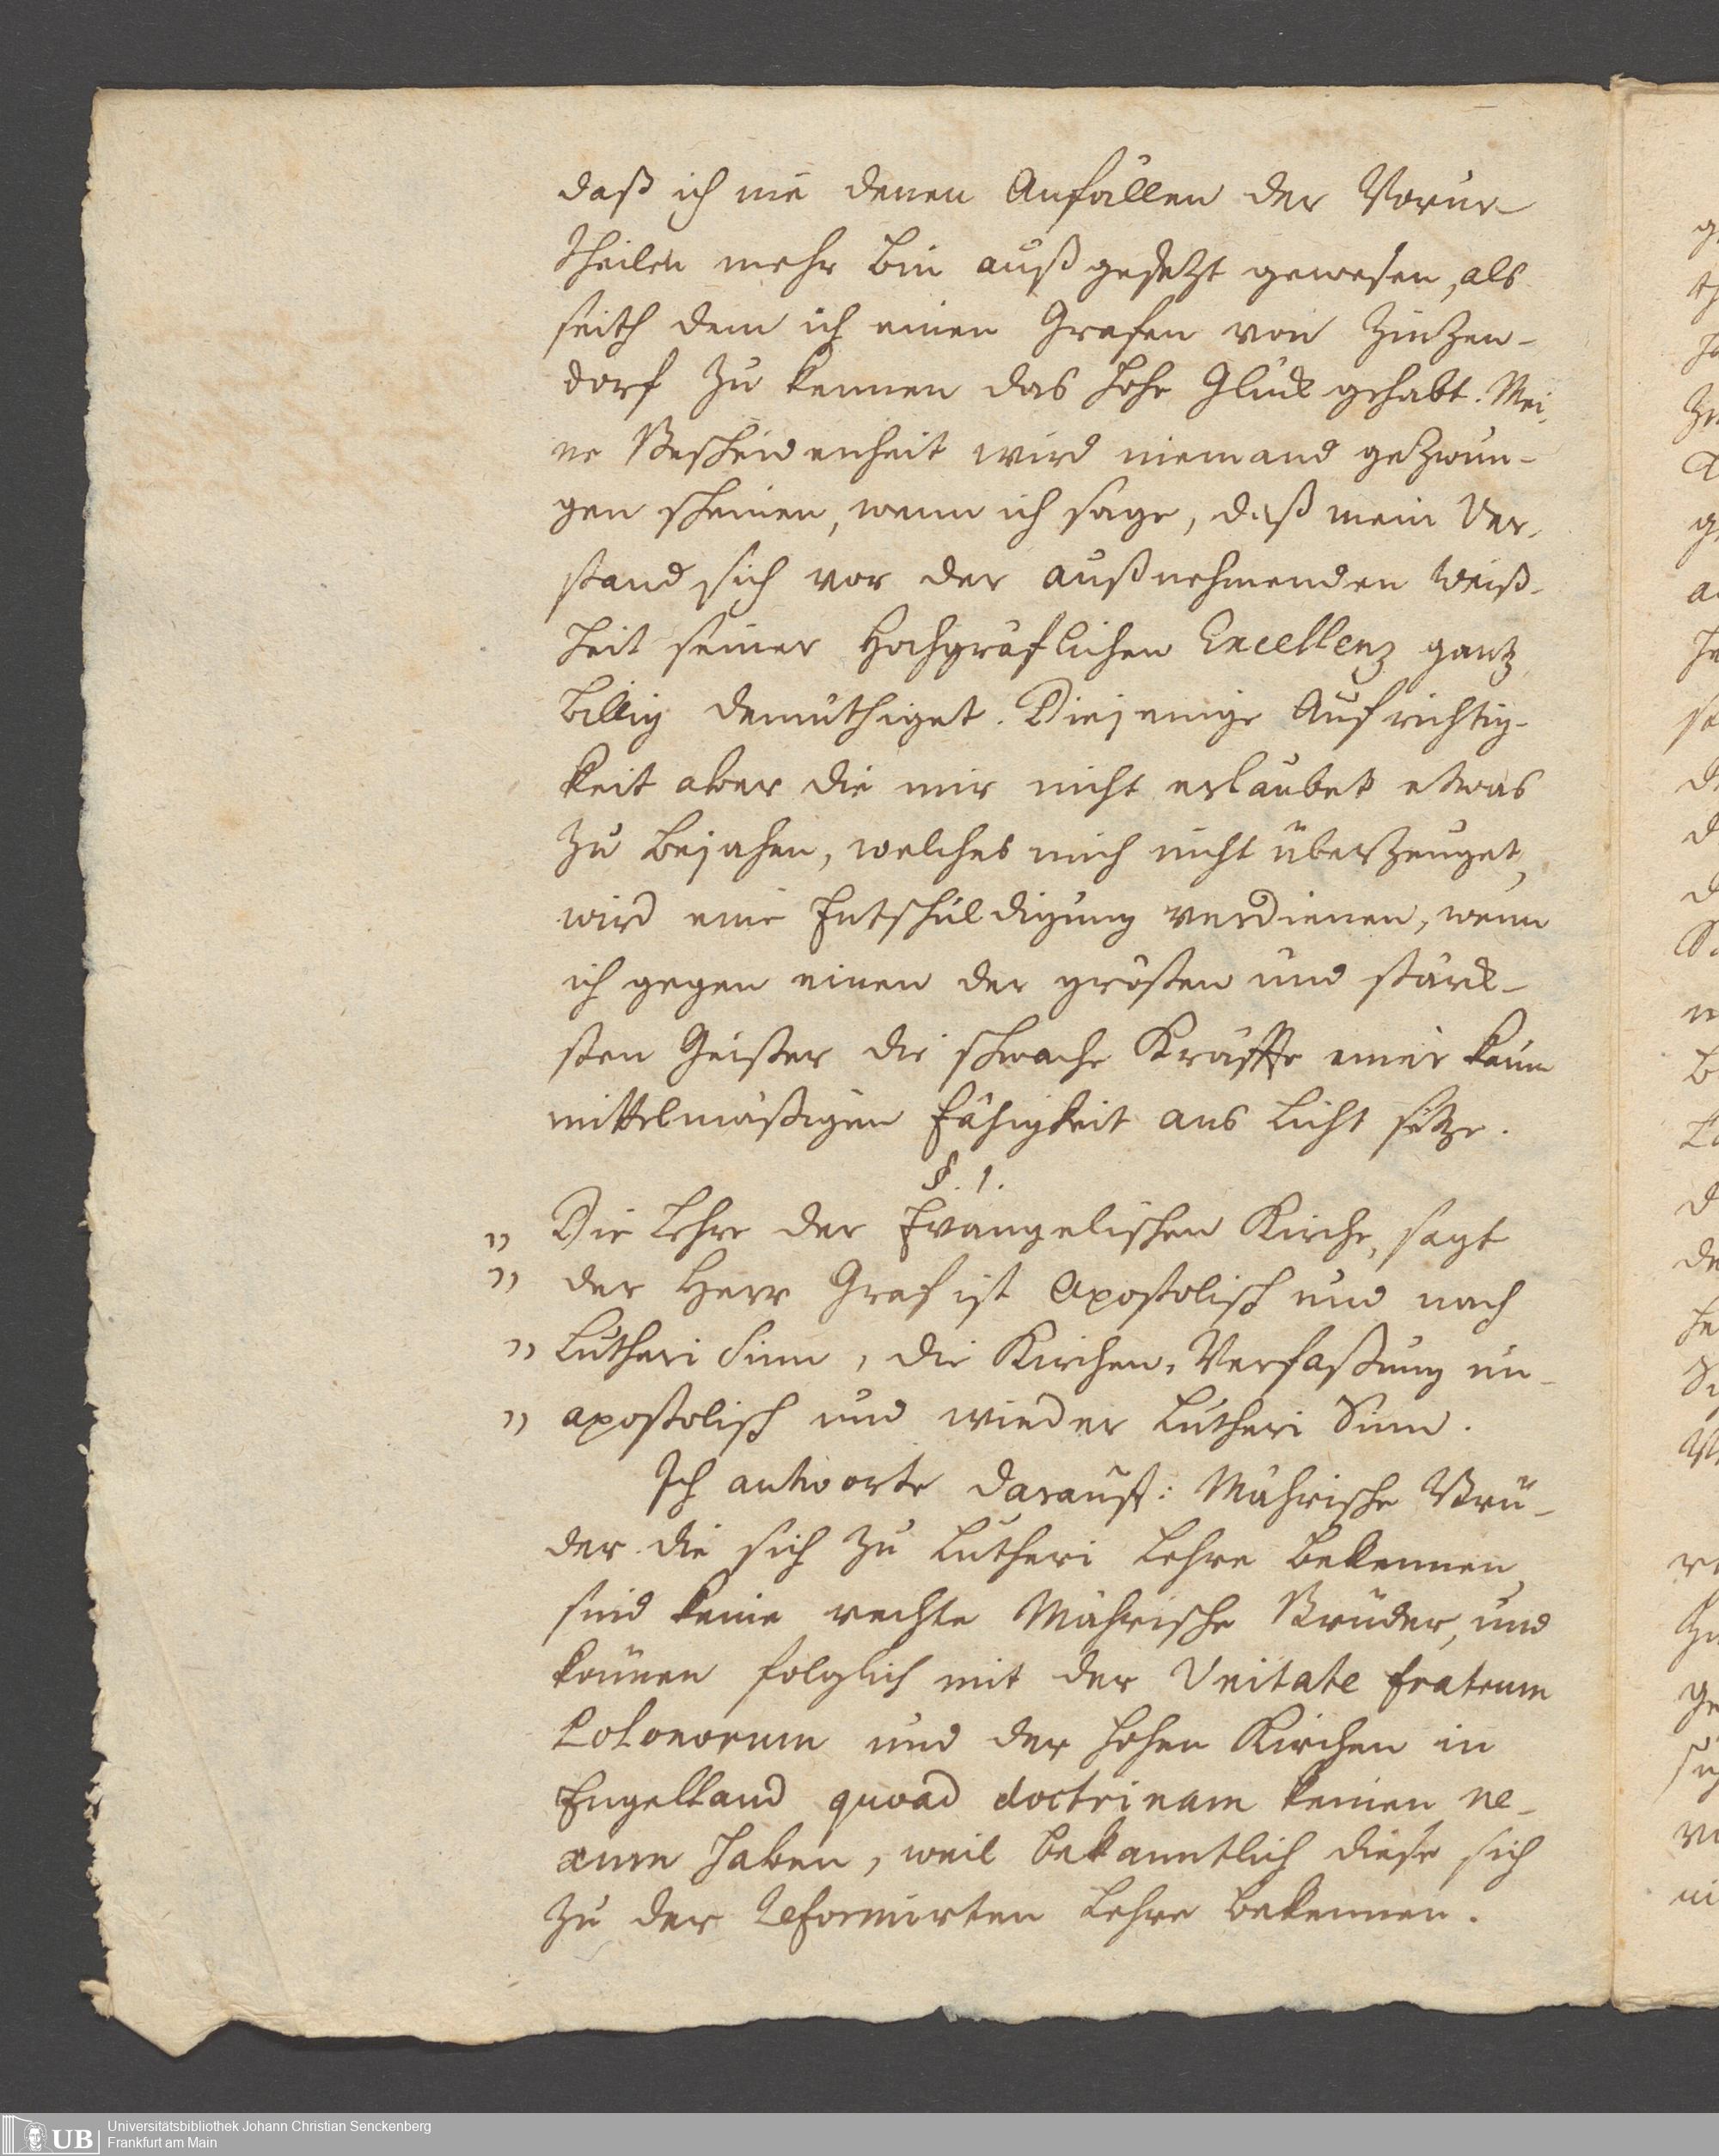 daß ich nie denen Anfällen der Vorur-
theilen mehr bin außgesetzt gewesen, als
seith dem ich einen Grafen von Zinzen-
dorf zu kennen das hohe Glück gehabt. Mei-
ne Bescheidenheit wird niemand gezwun-
gen scheinen, wenn ich sage, daß mein Ver-
stand sich vor der außnehmenden Weiß-
heit seiner Hochgräflichen Excellenz gantz
billig demüthiget. Diejenige Aufrichtig-
keit aber die mir nicht erlaubet etwas
zu bejahen, welches mich nicht überzeuget,
wird eine Entschuldigung verdienen, wenn
ich gegen einen der grösten und stärck-
sten Geister die schwache Kräffte einer kaum
mittelmäßigen Fähigkeit ans Licht setze.
§. 1.
" Die Lehre der Evangelischen Kirche, sagt
" der Herr Graf ist Apostolisch und nach
" Lutheri Sinn, die Kirchen-Verfaßung un-
" apostolisch und wieder Lutheri Sinn.
Ich antworte darauf: Mährische Brü-
der die sich zu Lutheri Lehre bekennen,
sind keine rechte Mährische Brüder, und
können folglich mit der Unitate fratrum
Polonorum und der hohen Kirchen in
Engelland quoad doctrinam keinen ne-
xum haben, weil bekanntlich diese sich
zu der Reformirten Lehre bekennen.
UB
Universitätsbibliothek Johann Christian Senckenberg
Frankfurt am Main